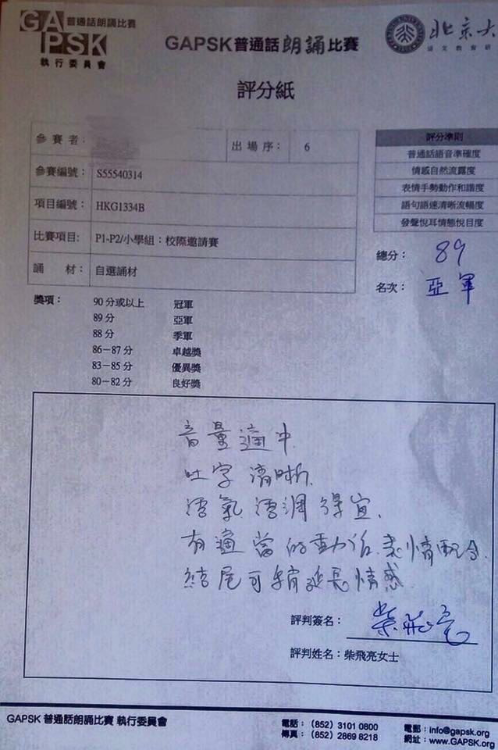 GAPSK 普通話朗誦比賽
執行委員會
GAPSK 普通話 朗誦 比賽
北京大
評分紙
參賽者:
出場序: 6
參賽編號: S55540314
項目編號: HKG1334B
比賽項目: P1-P2/小學組:校際邀請賽
誦 材: 自選誦材
評分準則
普通話語音準確度
情感自然流露度
表情手勢動作和諧度
語句語速清晰流暢度
發聲悅耳情態悅目度
總分: 89
名次: 亞軍
獎項: 90 分或以上 冠軍
89 分 亞軍
88 分 季軍
86－87 分 卓越獎
83－85 分 優異獎
80－82 分 良好獎
音量適中
吐字清晰.
語氣語調得宜.
有適當的動作.表情配合.
結尾可稍延長情感
評判簽名: 柴飛亮
評判姓名:柴飛亮女士
GAPSK 普通話朗誦比賽 執行委員會
電話: (852) 3101 0800
傳真: (852) 2869 8218
電郵: info@gapsk.org
網址: www.GAPSK.org